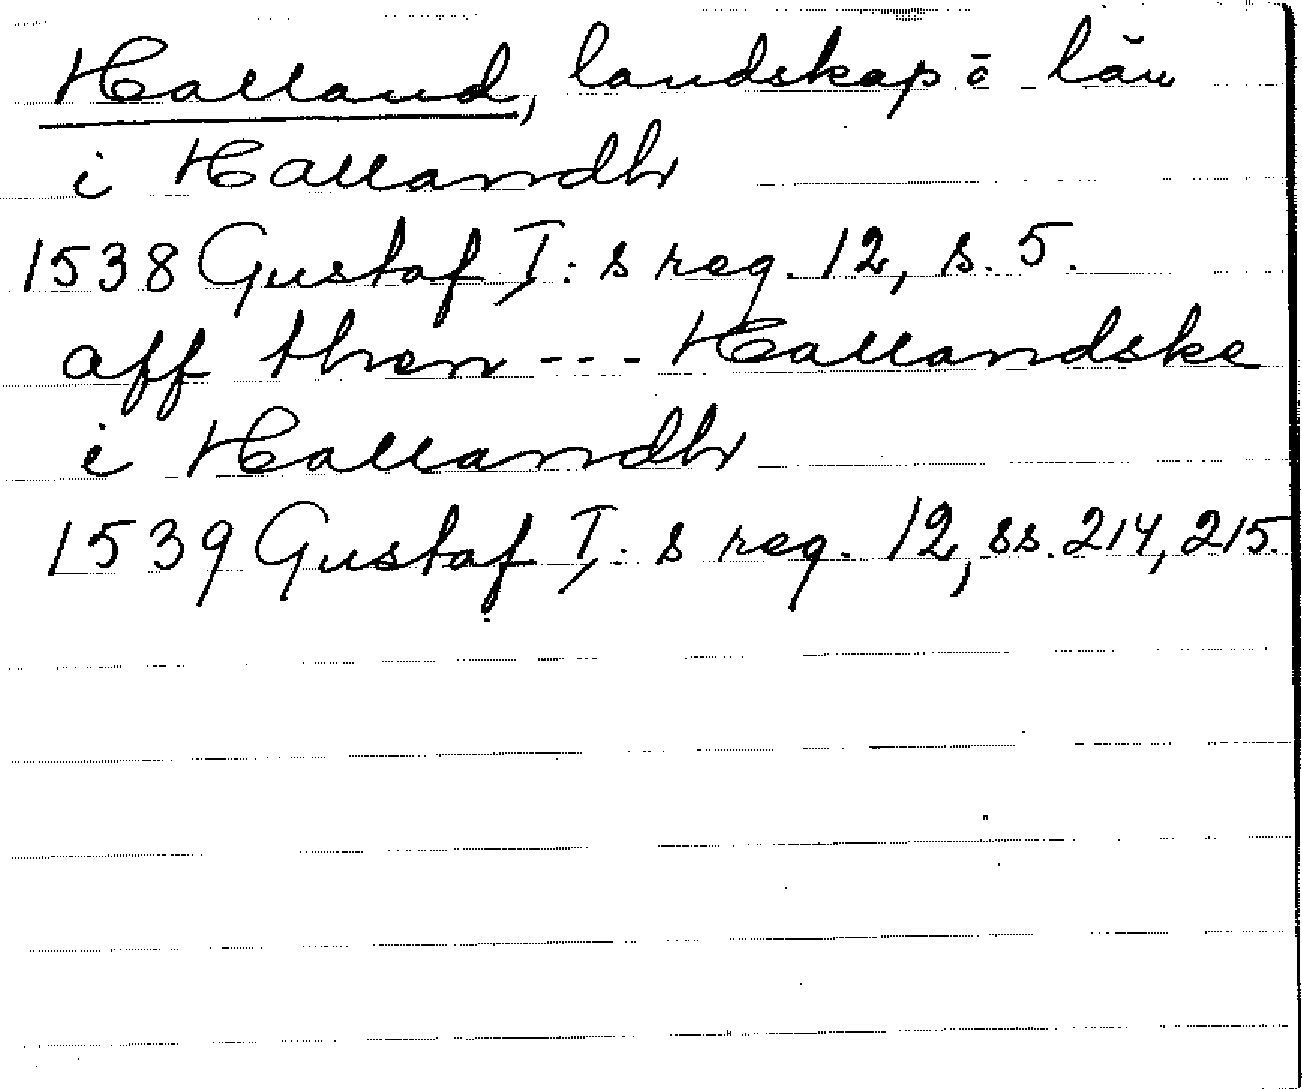 Halland, landskap o län
i Hallandh
1538 Gustaf I:s reg. 12, s. 5.
aff then --- Hallandske
i Hallandh
1539 Gustaf I:s reg. 12, ss. 214, 215.